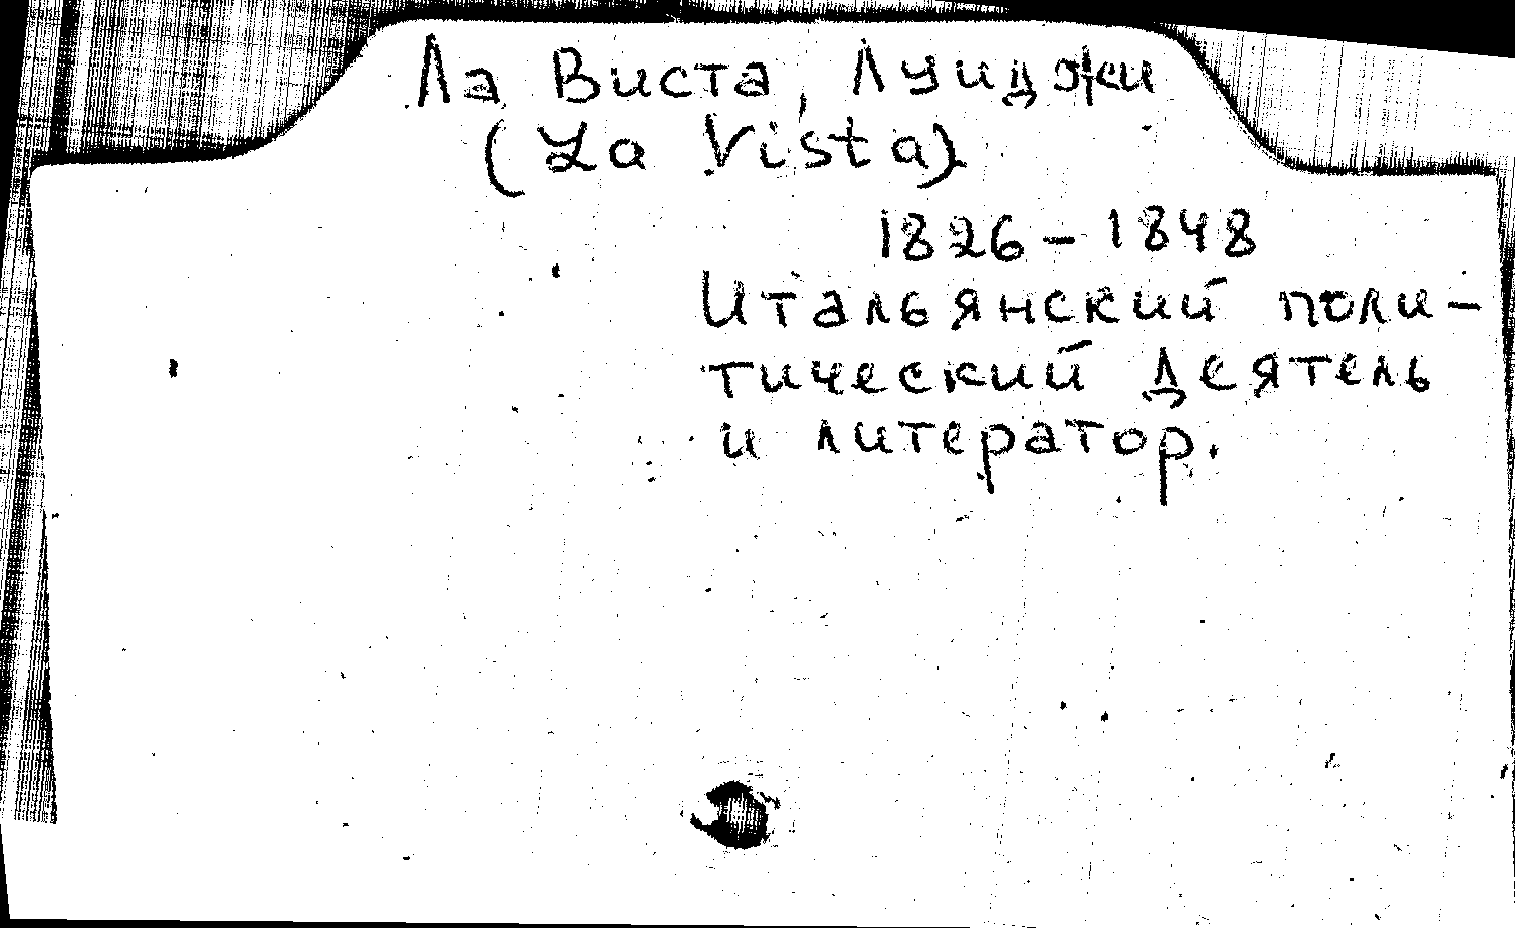 Ла Виста, Луиджи
(La Vista)
1826 – 1848
Итальянский поли-
тический деятель
и литератор.